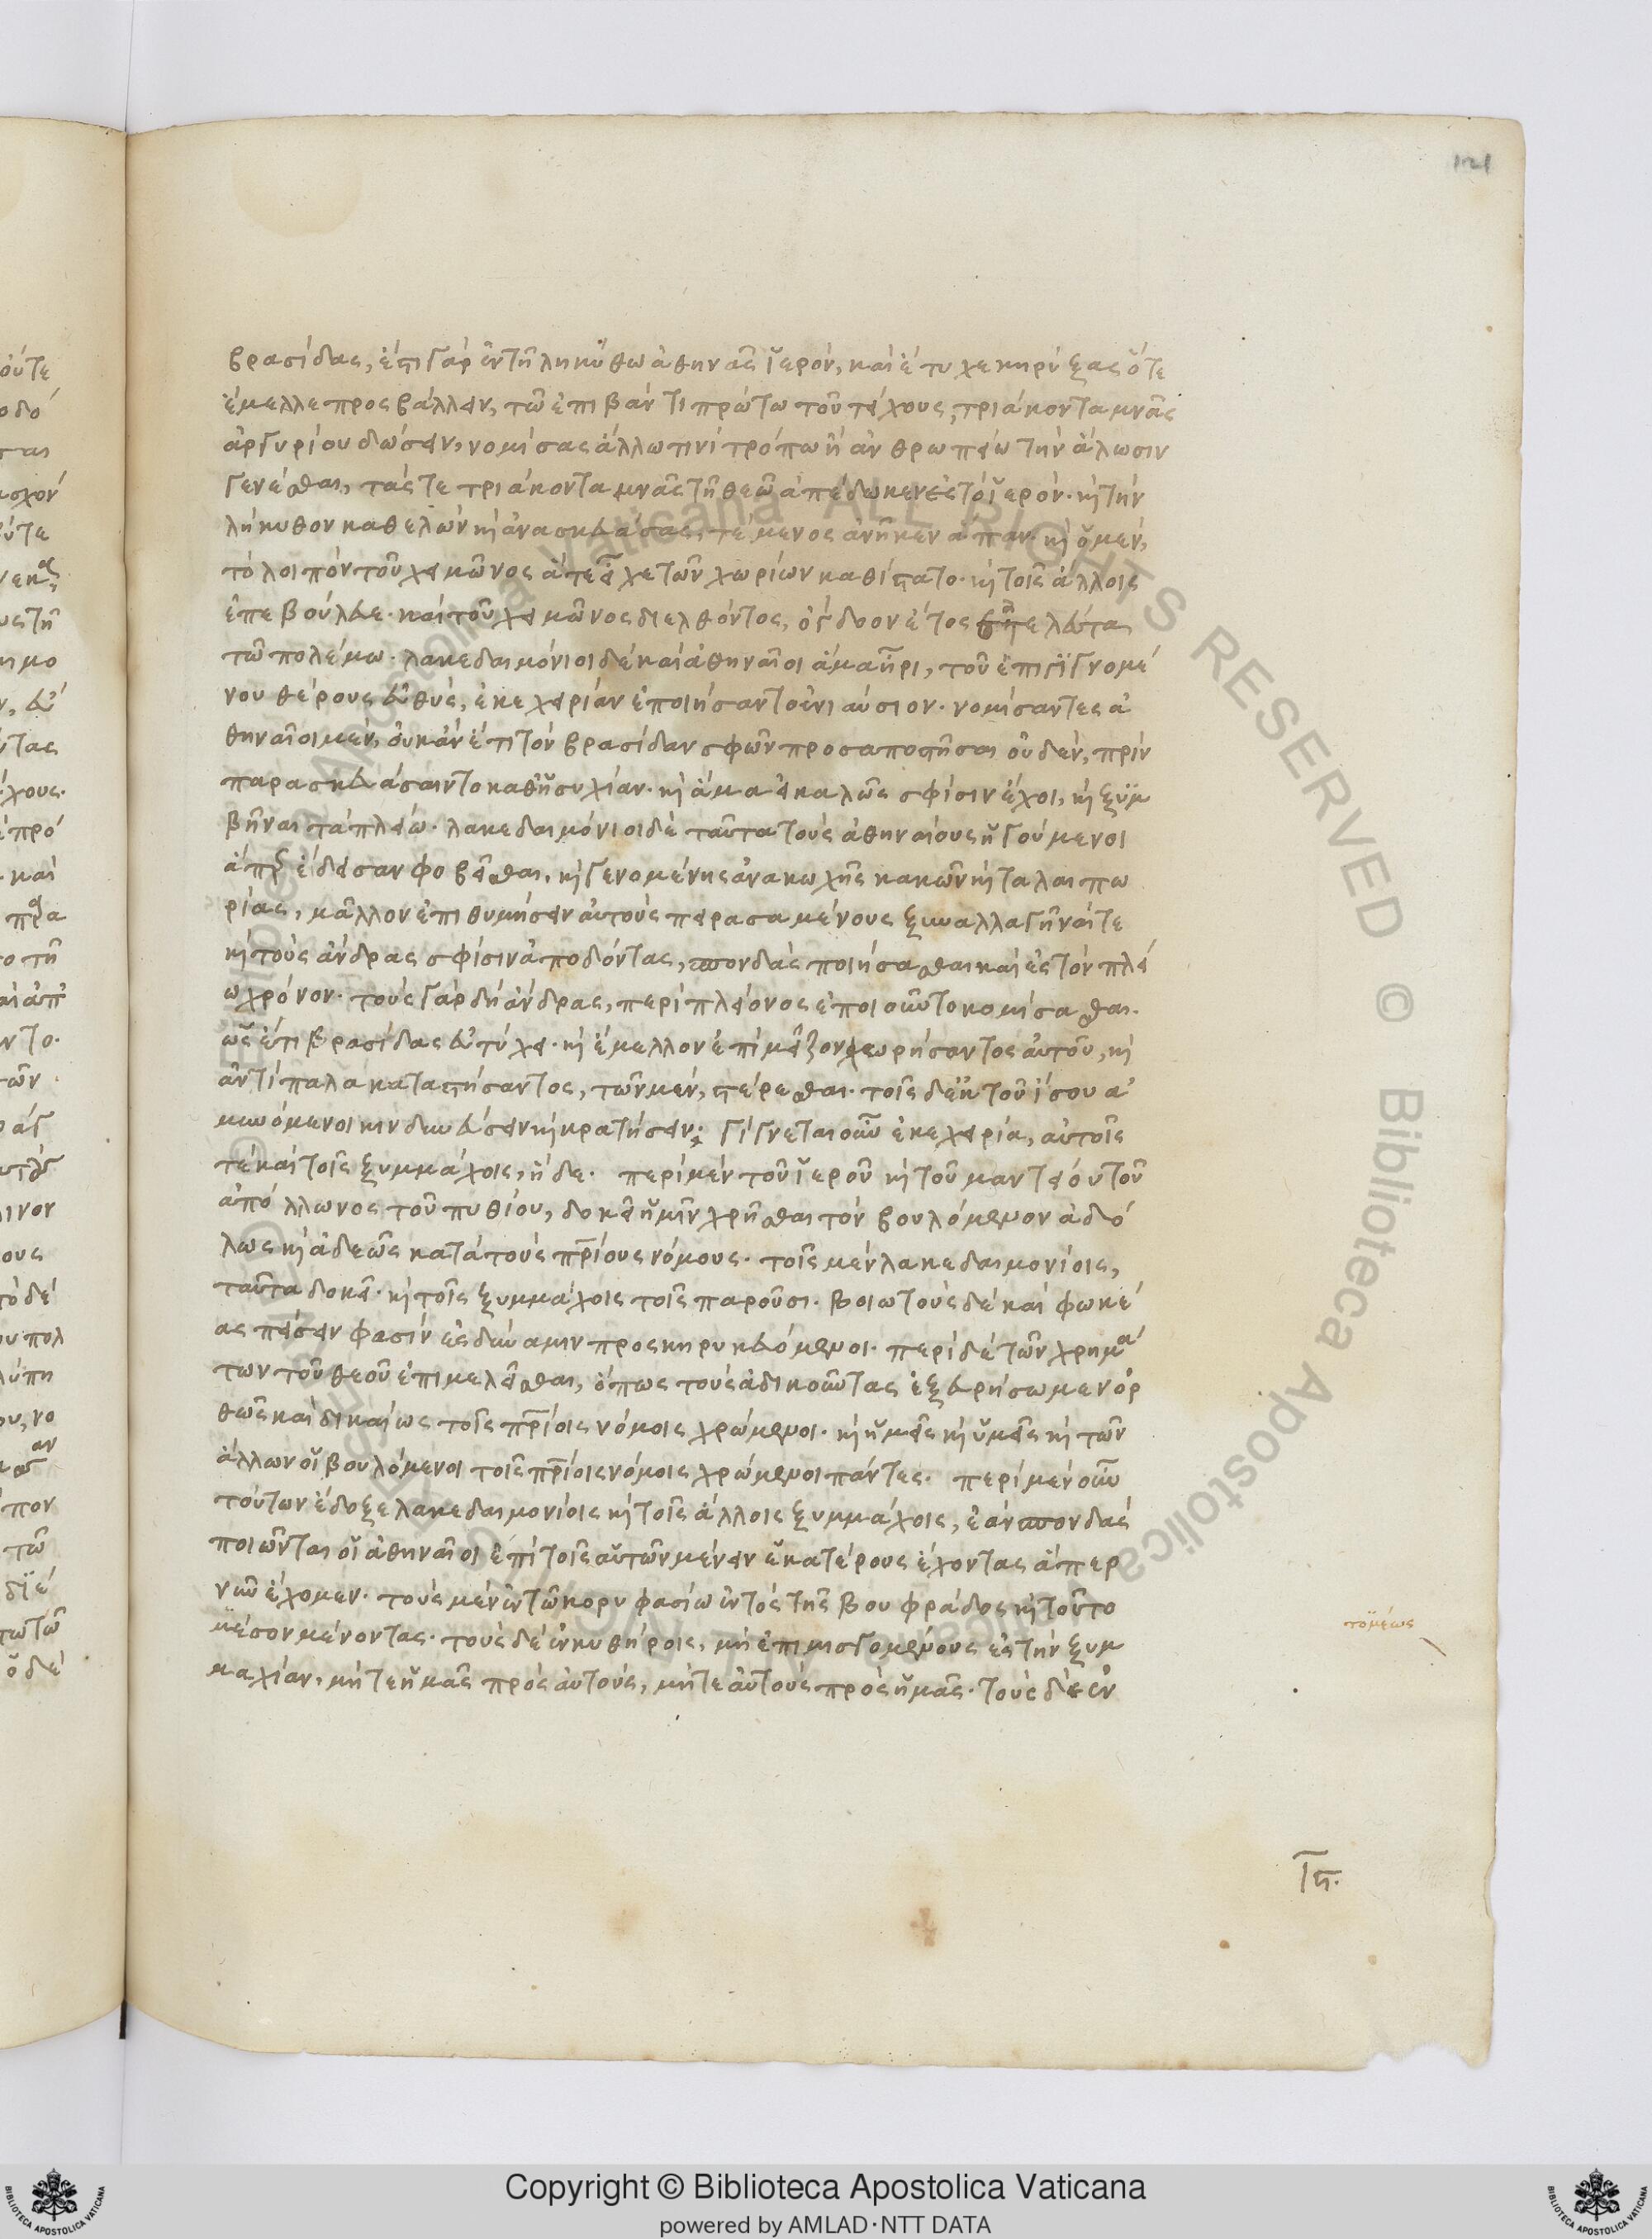 121
βρασίδας, ἔστι γὰρ ἐν τῆ ληκύθω ἀθηνᾶς ἱερόν, καὶ ἔτυχε κηρύξας ὅτε
ἔμελλε προσβάλλειν, τῶ ἐπιβάντι πρώτω τοῦ τείχους, τριάκοντα μνᾶς
ἀργυρίου δώσειν, νομίσας ἄλλω τινὶ τρόπω ἢ ἀνθρωπείω τὴν ἅλωσιν
γενέσθαι, τάς τε τριάκοντα μνᾶς τῆ θεῶ ἀπέδωκεν ἐς τὸ ἱερόν· κ(αὶ) τὴν
λήκυθον καθελὼν κ(αὶ) ἀνασκευάσας, τέμενος ἀνῆκεν ἅπαν· κ(αὶ) ὁ μέν,
τὸ λοιπὸν τοῦ χειμῶνος ἅ τε εἶχε τῶν χωρίων καθίστατο· κ(αὶ) τοῖς ἄλλοις
ἐπεβούλευε· καὶ τοῦ χειμῶνος διελθόντος, ὄγδοον ἔτος ἐτελεύτα
τῶ πολέμω· λακεδαιμόνιοι δὲ καὶ ἀθηναῖοι ἅμα ἦρι, τοῦ ἐπιγιγνομέ
νου θέρους εὐθύς, ἐκεχειρίαν ἐποιήσαντο ἐνιαύσιον· νομίσαντες ἀ
θηναῖοι μέν, οὐκ ἂν ἔτι τὸν βρασίδαν σφῶν προσαποστῆσαι οὐδέν, πρὶν
παρασκευάσαιντο καθ' ἡσυχίαν· κ(αὶ) ἅμα εἰ καλῶς σφίσιν ἔχοι, κ(αὶ) ξυμ
βῆναι τὰ πλείω· λακεδαιμόνιοι δὲ ταῦτα τοὺς ἀθηναίους ἡγούμενοι
ἅπερ ἔδεισαν φοβεῖσθαι, κ(αὶ) γενομένης ἀνακωχῆς κακῶν κ(αὶ) ταλαιπω
ρίας, μᾶλλον ἐπιθυμήσειν αὐτοὺς πειρασαμένους ξυναλλαγῆναί τε
κ(αὶ) τοὺς ἄνδρας σφίσιν ἀποδόντας, σπονδὰς ποιήσασθαι καὶ ἐς τὸν πλεί
ω χρόνον· τοὺς γὰρ δὴ ἄνδρας, περὶ πλείονος ἐποιοῦντο κομίσασθαι·
ὡς ἔτι βρασίδας εὐτύχει· κ(αὶ) ἔμελλον ἐπὶ μεῖζον χωρήσαντος αὐτοῦ, κ(αὶ)
ἀντίπαλα καταστήσαντος, τῶν μέν, στέρεσθαι· τοῖς δ' ἐκ τοῦ ἴσου ἀ
μυνόμενοι κινδυνεύσειν κ(αὶ) κρατήσειν: γίγνεται οὖν ἐκεχειρία, αὐτοῖς
τὲ καὶ τοῖς ξυμμάχοις, ἥδε· περὶ μὲν τοῦ ἱεροῦ κ(αὶ) τοῦ μαντείου τοῦ
ἀπόλλωνος τοῦ πυθίου, δοκεῖ ἡμῖν χρῆσθαι τὸν βουλόμενον ἀδό
λως κ(αὶ) ἀδεῶς κατὰ τοὺς πρίους νόμους· τοῖς μὲν λακεδαιμονίοις,
ταῦτα δοκεῖ· κ(αὶ) τοῖς ξυμμάχοις τοῖς παροῦσι· βοιωτοὺς δὲ καὶ φωκέ
ας πείσειν φασὶν ἐς δύναμιν προσκηρυκευόμενοι· περὶ δὲ τῶν χρημά
των τοῦ θεοῦ ἐπιμελεῖσθαι, ὅπως τοὺς ἀδικοῦντας ἐξευρήσωμεν ὀρ
θῶς καὶ δικαίως τοῖς πρίοις νόμοις χρώμενοι· κ(αὶ) ἡμεῖς κ(αὶ) ὑμεῖς κ(αὶ) τῶν
ἄλλων οἱ βουλόμενοι τοῖς πρίοις νόμοις χρώμενοι πάντες· περὶ μὲν οὖν
τούτων ἔδοξε λακεδαιμονίοις κ(αὶ) τοῖς ἄλλοις ξυμμάχοις, ἐὰν σπονδὰς
ποιῶνται οἱ ἀθηναῖοι ἐπὶ τοῖς αὐτῶν μένειν ἑκατέρους ἔχοντας ἅπερ
νῦν ἔχομεν· τοὺς μὲν ἐν τῶ κορυφασίω ἐντὸς τῆς βουφράδος κ(αὶ) τοῦ το
μέσον μένοντας· τοὺς δὲ ἐν κυθήροις, μὴ ἐπιμισγομένους ἐς τὴν ξυμ
μαχίαν, μήτε ἡμᾶς πρὸς αὐτούς, μήτε αὐτοὺς πρὸς ἡμᾶς· τοὺς δὲ ἐν
τομέως
Copyright © Biblioteca Apostolica Vaticana
powered by AMLAD·NTT DATA